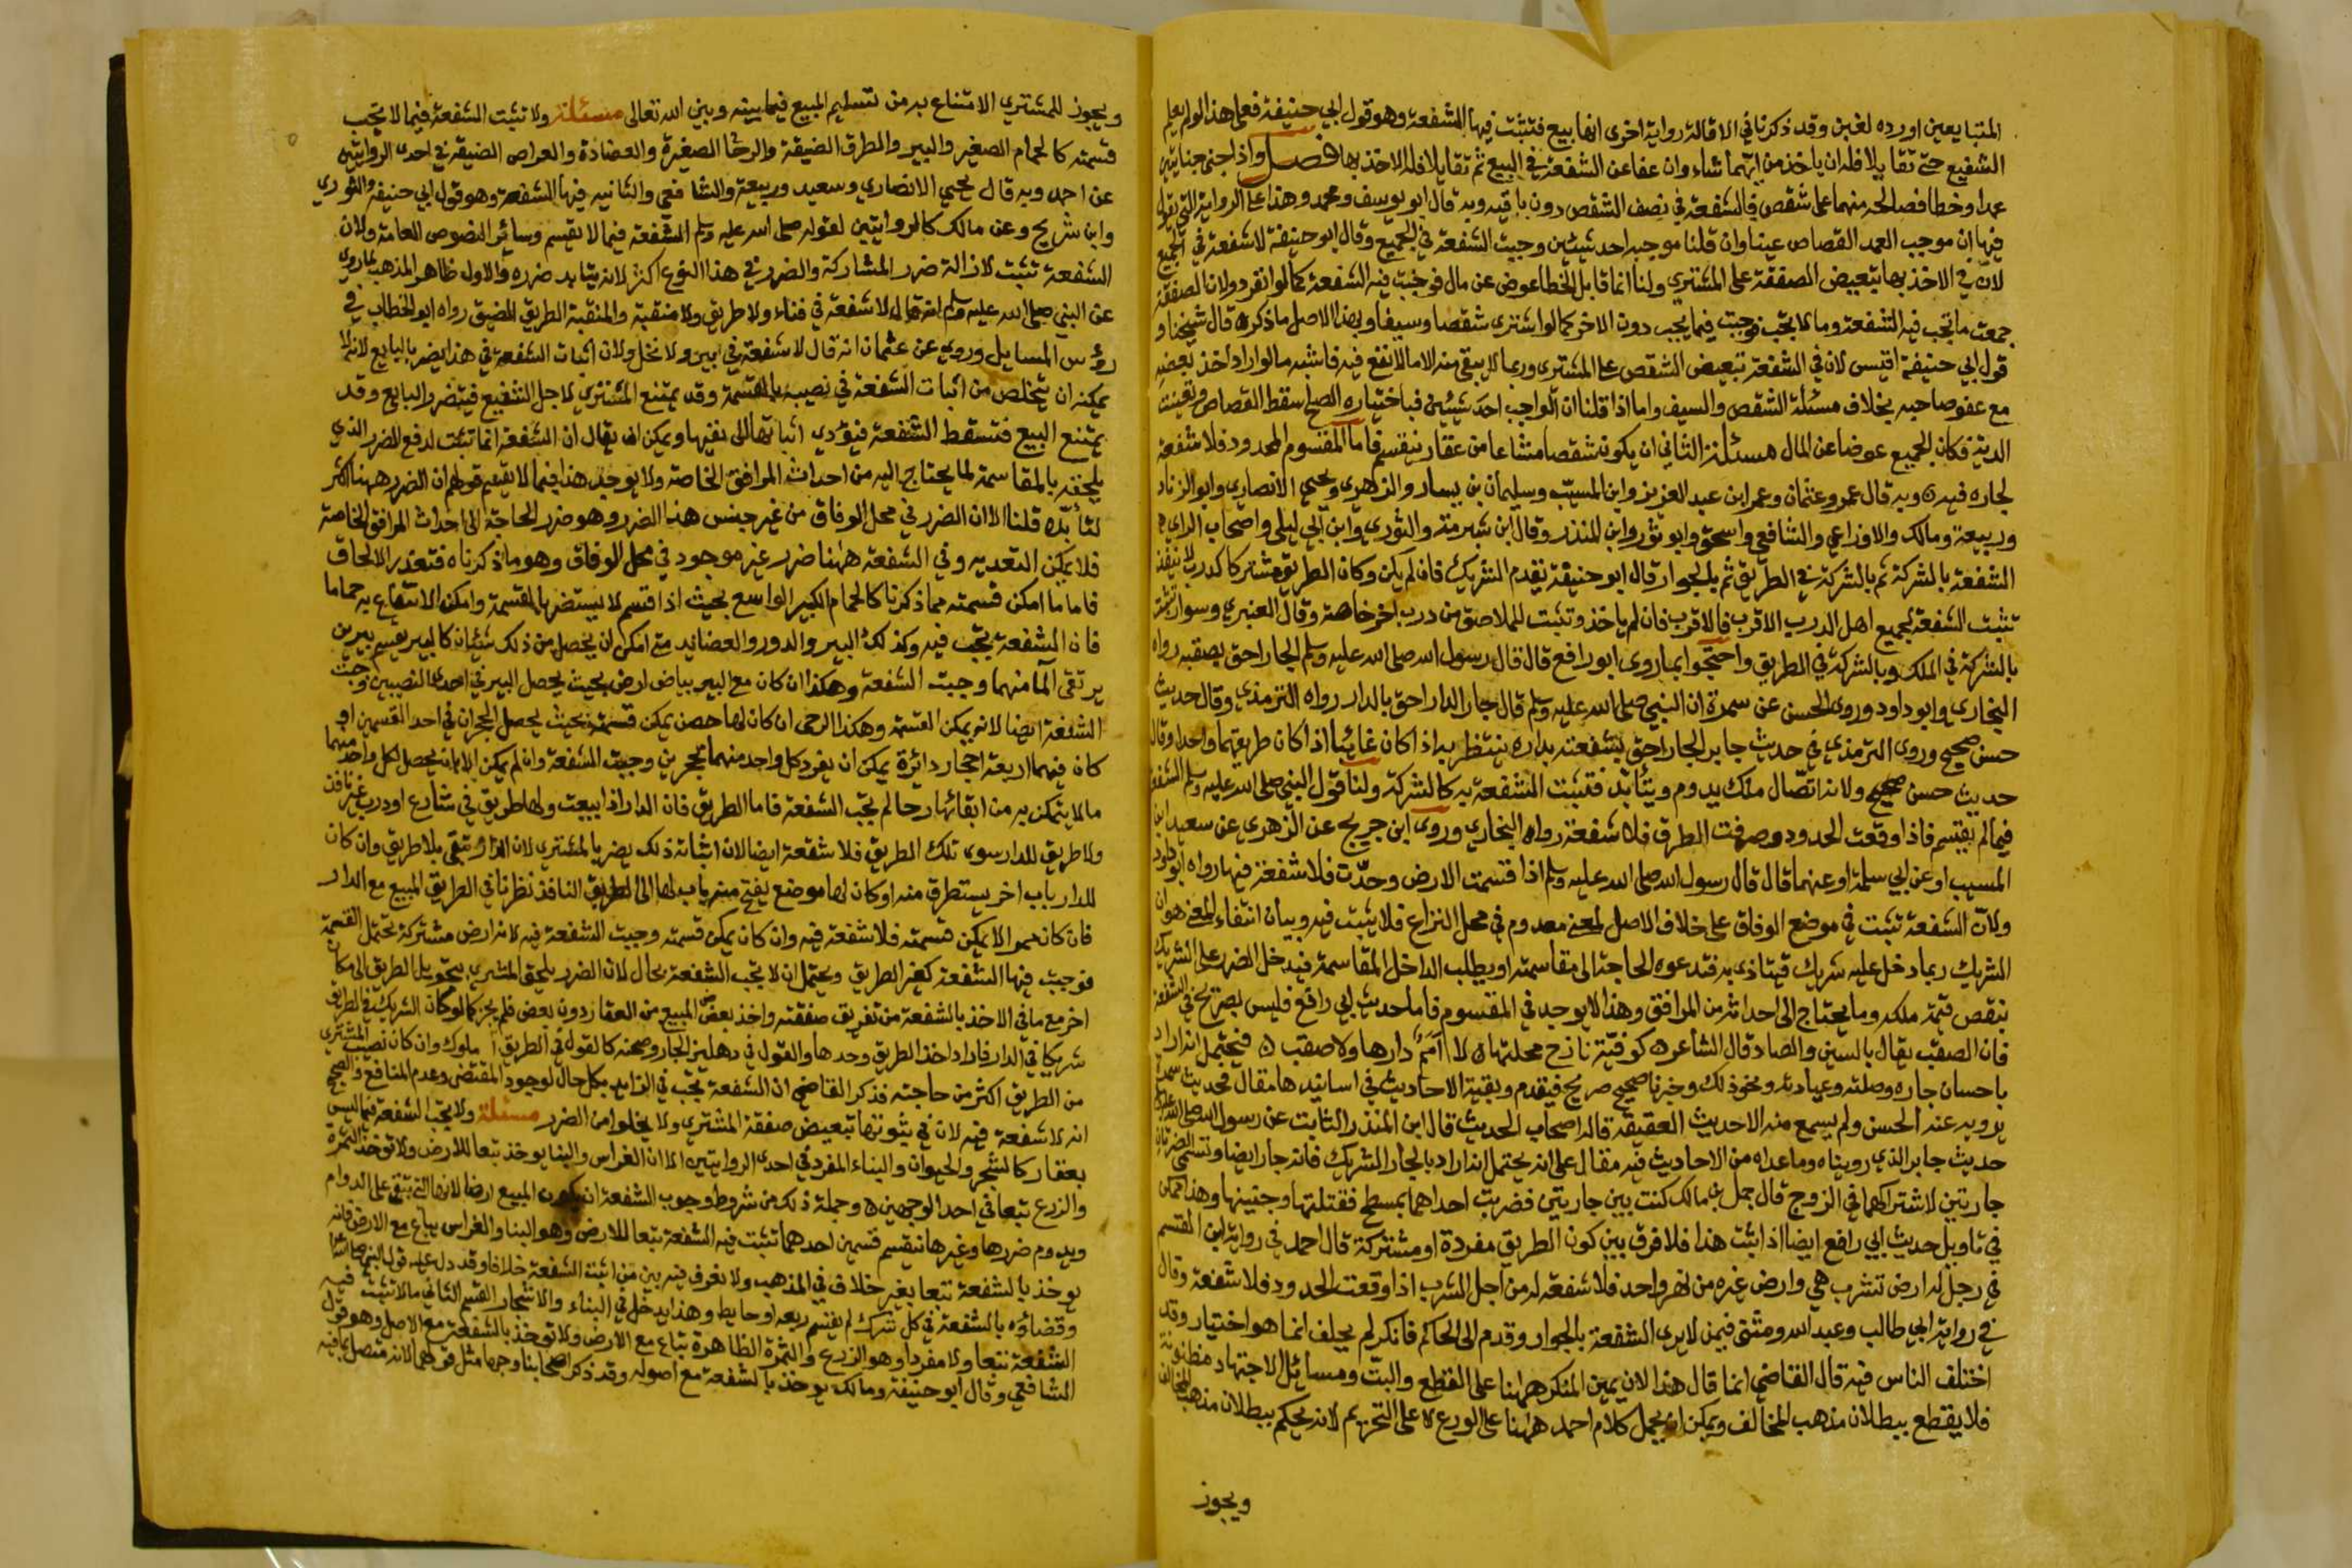 المتبايعين اورده لغبن وقد ذكرنا في الاقالة رواية اخرى انها بيع فتثبت فيها الشفعة وهو قول ابي حنيفة فعلى هذا لو لم يعلم
الشفيع حتى تقايلا فله ان ياخذ من ايهما شاء وان عفا عن الشفعة في البيع ثم تقايلا فله الاخذ بها فصل واذا جنى جنايتين
عمدا وخطا فصالحه منهما على شقص فالشفعة في نصف الشقص دون باقيه وبه قال ابو يوسف ومحمد وهذا على الرواية التي يقول
فيها ان موجب العمد القصاص عينا وان قلنا موجبه احد شيئين وجبت الشفعة في الجميع وقال ابو حنيفة لا شفعة في الجميع
لان في الاخذ بها تبعيض الصفقة على المشتري ولنا انما قابل الخطا عوض عن مال فوجبت فيه الشفعة كما لو انفرد ولان الصفقة
جمعت ما تجب فيه الشفعة وما لا تجب فوجبت فيما يجب دون الاخر كما لو اشترى شقصا وسيفا وبهذا الاصل ما ذكره قال شيخنا و
قول ابي حنيفة اقيس لان في الشفعة تبعيض الشقص على المشتري وربما لا يبقى منه الا ما لا نفع فيه فاشبه ما لو اراد اخذ بعضه
مع عفو صاحبه بخلاف مسئلة الشقص والسيف واما اذا قلنا ان الواجب احد شيئين فباختياره الصلح سقط القصاص وتعينت
الدية فكان الجميع عوضا عن المال مسئلة الثاني ان يكون شقصا مشاعا من عقار ينقسم فاما المقسوم المحدود فلا شفعة
لجاره فيه وبه قال عمر وعثمان وعمر ابن عبد العزيز وابن المسيب وسليمان بن يسار والزهري ويحيى الانصاري وابو الزناد
وربيعة ومالك والاوزاعي والشافعي واسحق وابو ثور وابن المنذر وقال ابن شبرمة والثوري وابن ابي ليلى واصحاب الراي
الشفعة بالشركة ثم بالشركة في الطريق ثم بالجوار قال ابو حنيفة يقدم الشريك فان لم يكن وكان الطريق مشتركا كدرب لا ينفذ
تثبت الشفعة لجميع اهل الدرب الاقرب فالاقرب فان لم ياخذ وتثبت للملاصق من درب اخر خاصة وقال العنبري وسوار تثبت
بالشركة في الملك وبالشركة في الطريق واحتجوا بما روى ابو رافع قال قال رسول الله صلى الله عليه وسلم الجار احق بصقبه رواه
البخاري وابو داود وروى الحسن عن سمرة ان النبي صلى الله عليه وسلم قال جار الدار احق بالدار رواه الترمذي وقال حديث
حسن صحيح وروى الترمذي في حديث جابر الجار احق بشفعته بداره ينتظر به اذا كان غائبا اذا كان طريقهما واحدا وقال
حديث حسن صحيح ولانه اتصال ملك يدوم ويتأبد فتثبت الشفعة به كالشركة ولنا قول النبي صلى الله عليه وسلم الشفعة
فيما لم يقسم فاذا وقعت الحدود وصرفت الطرق فلا شفعة رواه البخاري وروى ابن جريج عن الزهري عن سعيد ابن
المسيب او عن ابي سلمة او عنهما قال قال رسول الله صلى الله عليه وسلم اذا قسمت الارض وحدّت فلا شفعة فيها رواه ابو داود
ولان الشفعة تثبت في موضع الوفاق على خلاف الاصل لمعنى معدوم في محل النزاع فلا يثبت فيه وبيان انتفاء المعنى هو ان
الشريك ربما دخل عليه شريك فيتاذى به فتدعوه الحاجة الى مقاسمته او يطلب الداخل المقاسمة فيدخل الضرر على الشريك
بنقص قيمة ملكه وما يحتاج الى احداثه من المرافق وهذا لا يوجد في المقسوم فاما حديث ابي رافع فليس بصريح في الشفعة
فان الصقب يقال بالسين والصاد قال الشاعر كوفية نازح محلتها لا أمم دارها ولا صقب فيحتمل انه اراد
باحسان جاره وصلته وعيادته ونحو ذلك وخبرنا صحيح صريح فيقدم وبقية الاحاديث في اسانيدها مقال فحديث سمرة
يرويه عنه الحسن ولم يسمع منه الا حديث العقيقة قاله اصحاب الحديث قال ابن المنذر الثابت عن رسول الله صلى الله عليه
حديث جابر الذي رويناه وما عداه من الاحاديث فيه مقال على انه يحتمل انه اراد بالجار الشريك فانه جار ايضا وتسمى الضرتان
جارتين لاشتراكهما في الزوج قال حمل بن مالك كنت بين جارتين فضربت احداهما بمسطح فقتلتها وجنينها وهذا ممكن
في تاويل حديث ابي رافع ايضا اذا ثبت هذا فلا فرق بين كون الطريق مفردة او مشتركة قال احمد في رواية ابن القسم
في رجل له ارض تشرب هي وارض غيره من نهر واحد فلا شفعة له من اجل الشرب اذا وقعت الحدود فلا شفعة وقال
في رواية ابي طالب وعبد الله ومثنى فيمن لا يرى الشفعة بالجوار وقدم الى الحاكم فانكر لم يحلف انما هو اختيار وقد
اختلف الناس فيه قال القاضي انما قال هذا لان يمين المنكر ههنا على القطع والبت ومسائل الاجتهاد مظنونة
فلا يقطع ببطلان مذهب المخالف ويمكن ان يحمل كلام احمد ههنا على الورع لا على التحريم لانه يحكم ببطلان مذهب المخالف
ويجوز
ويجوز للمشتري الامتناع به من تسليم المبيع فيما بينه وبين الله تعالى مسئلة ولا تثبت الشفعة فيما لا تجب
قسمته كالحمام الصغير والبير والطرق الضيقة والرحا الصغيرة والعضادة والعراص الضيقة في احدى الروايتين
عن احمد وبه قال يحيى الانصاري وسعيد وربيعة والشافعي والثانيه فيها الشفعة وهو قول ابي حنيفة والثوري
وابن شريح وعن مالك كالروايتين لقوله صلى الله عليه وسلم الشفعة فيما لا يقسم وسائر النصوص العامة ولان
الشفعة تثبت لازالة ضرر المشاركة والضرر في هذا النوع اكثر لانه يتابد ضرره والاول ظاهر المذهب لما روي
عن النبي صلى الله عليه وسلم انه قال لا شفعة في فناء ولا طريق ولا منقبة والمنقبة الطريق الضيق رواه ابو الخطاب في
رؤس المسايل وروي عن عثمان انه قال لا شفعة في بير ولا نخل ولان اثبات الشفعة في هذا يضر بالبايع لانه لا
يمكنه ان يتخلص من اثبات الشفعة في نصيبه بالقسمة وقد يمتنع المشتري لاجل الشفيع فيتضرر البايع وقد
يمتنع البيع فتسقط الشفعة فيؤدي اثباتها الى نفيها ويمكن ان يقال ان الشفعة انما تثبت لدفع الضرر الذي
يلحقه بالمقاسمة لما يحتاج اليه من احداث المرافق الخاصة ولا يوجد هذا فيما لا يقسم قولهم ان الضرر ههنا اكثر
لتأبده قلنا الا ان الضرر في محل الوفاق من غير جنس هذا الضرر وهو ضرر الحاجة الى احداث المرافق الخاصة
فلا يمكن التعديه وفي الشفعة ههنا ضرر غير موجود في محل الوفاق وهو ما ذكرناه فتعذر الالحاق
فاما ما امكن قسمته مما ذكرنا كالحمام الكبير الواسع بحيث اذا قسم لا يستضر بالقسمة وامكن الانتفاع به حماما
فان الشفعة تجب فيه وكذلك البير والدور والعضائد متى امكن ان يحصل من ذلك شيئان كالبير يقسم بيرين
يرتقى الما منهما وجبت الشفعة وهكذا ان كان مع البير بياض ارض بحيث يحصل البير في احدى النصيبين وجبت
الشفعة ايضا لانه يمكن القسمة وهكذا الرحى ان كان لها حصن يمكن قسمته بحيث يحصل الحجران في احد القسمين او
كان فيهما اربعة احجار دائرة يمكن ان يفرد كل واحد منهما بحجرين وجبت الشفعة وان لم يمكن الا بان يحصل لكل واحد منهما
ما لا يتمكن به من ابقائها رحا لم تجب الشفعة فاما الطريق فان الدار اذا بيعت ولها طريق في شارع او درب غير نافذ
ولا طريق للدار سوى تلك الطريق فلا شفعة ايضا لان اثبات ذلك يضر بالمشتري لان الدار تبقى بلا طريق وان كان
للدار باب اخر يستطرق منه او كان لها موضع يفتح منه باب لها الى الطريق النافذ نظرنا في الطريق المبيع مع الدار
فان كان ممرا لا يمكن قسمته فلا شفعة فيه وان كان يمكن قسمته وجبت الشفعة فيه لانه ارض مشتركة تحتمل القسمة
فوجبت فيها الشفعة كغير الطريق ويحتمل ان لا تجب الشفعة بحال لان الضرر يلحق المشتري بتحويل الطريق الى مكان
اخر مع ما في الاخذ بالشفعة من تفريق صفقته واخذ بعض المبيع من العقار دون بعض فلم يجز كما لو كان الشريك في الطريق
شريكا في الدار فاراد اخذ الطريق وحدها والقول في دهليز الجار وصحنه كالقول في الطريق المملوك وان كان نصيب المشتري
من الطريق اكثر من حاجته فذكر القاضي ان الشفعة تجب في الزايد بكل حال لوجود المقتضي وعدم المنافع والصحيح
انه لا شفعة فيه لان في ثبوتها تبعيض صفقة المشتري ولا يخلو من الضرر مسئلة ولا تجب الشفعة فيما ليس
بعقار كالشجر والحيوان والبناء المفرد في احدى الروايتين الا ان الغراس والبنا يوخذ تبعا للارض ولا توخذ الثمرة
والزرع تبعا في احد الوجهين وجملة ذلك من شروط وجوب الشفعة ان يكون المبيع ارضا لانها التي تبقى على الدوام
ويدوم ضررها وغيرها ينقسم قسمين احدهما تثبت فيه الشفعة تبعا للارض وهو البنا والغراس يباع مع الارض فانه
يوخذ بالشفعة تبعا بغير خلاف في المذهب ولا نعرف فيه بين من اثبت الشفعة خلافا وقد دل عليه قول النبي صلى الله عليه
وقضاؤه بالشفعة في كل شرك لم يقسم ربعه او حايط وهذا يدخل في البناء والاشجار القسم الثاني ما لا تثبت فيه
الشفعة تبعا ولا مفردا وهو الزرع والثمرة الظاهرة تباع مع الارض ولا توخذ بالشفعة مع الاصل وهو قول
الشافعي وقال ابو حنيفة ومالك يوخذ بالشفعة مع اصوله وقد ذكر اصحابنا وجها مثل قولهما لانه متصل بما فيه